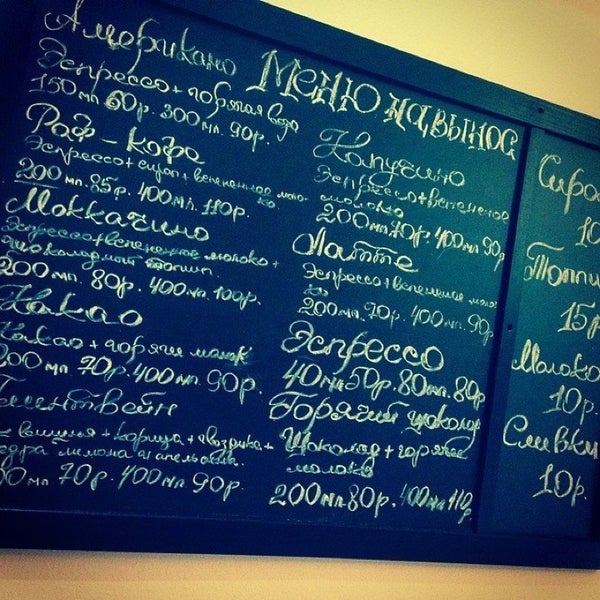 Меню на вынос
Американо
Эспрессо + горячая вода
150 мл 60р. 300 мл 90р.
Раф-кофе
Эспрессо + сироп + вспененное моло-
ко
200 мл. 85р. 400 мл. 110р.
Моккачино
Эспрессо + вспененное молоко +
шоколадный топпин.
200 мл. 80р. 400 мл. 100р.
Какао
Какао + горячее молок
200 мл 70р. 400 мл. 90р.
вишня + корица + гвоздика +
цедра лимона и апельсина.
70р. 400 мл 90р.
Капучино
Эспрессо + вспененое
молоко
200 мл 70р. 400 мл 90р
Латте
Эспрессо + вспененное моло-
ко
200 мл. 70р. 400 мл. 90р
Эспрессо
40 мл 50р. 80 мл. 80р
Горячий шоколад
Шоколад + горячее
молоко
200 мл. 80р. 400 мл 110р
Сиро
10
Топпи
15р
Молоко
10р.
Сливки
10р.